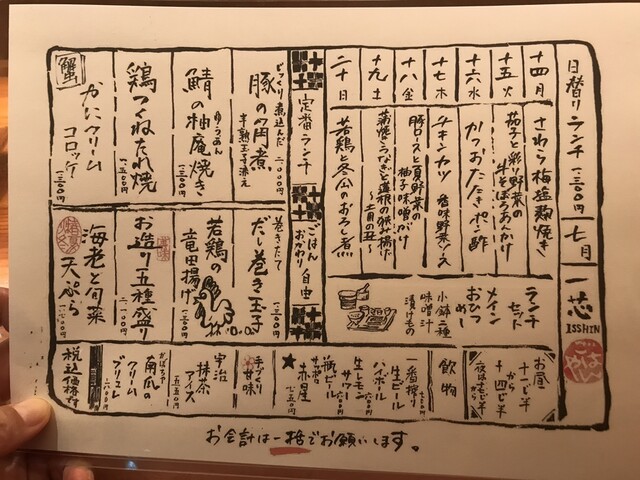 日替りランチ 一三〇〇円 七月 一芯
ISSHIN
ごはんや
十四 月 さわら梅塩麹焼き
十五 火 茄子と彩り野菜の
牛そぼろあんかけ
十六 水 かつおたたきポン酢
十七 木 チキンカツ 香味野菜ソース
十八 金 豚ロースと夏野菜の
柚子味噌がけ
十九 土 蒲焼きうなぎと蓮根の挟み揚げ
〜土用の丑〜
二十 日 若鶏と冬瓜のおろし煮
ランチ
セット
メイン
おひつ
めし
小鉢二種
味噌汁
漬けもの
定番ランチ
ごはん
おかわり 自由
じっくり煮込んだ 二、〇〇〇円
豚の角煮
半熟玉子添え
鯖の柚庵焼き
ゆうあん
一三〇〇円
鶏つくねたれ焼
一、五〇〇円
蟹
かにクリーム
コロッケ 一三〇〇円
巻きたて
だし巻き玉子
一三〇〇円
若鶏の
竜田揚げ
一三〇〇円
お造り五種盛り
二、一〇〇円
海老と旬菜
天ぷら
お昼
十一じ半
から
十四じ半
夜は七じ半
から
飲物
一番搾り
生ビール
ハイボール
生レモン
サワー
瓶ビール
サッポロ
赤星
七五〇円
★
手づくり
甘味
宇治
抹茶
アイス
五五〇円
かぼちゃ
南瓜の
クリーム
ブリュレ
税込価格です
お会計は一括でお願いします。